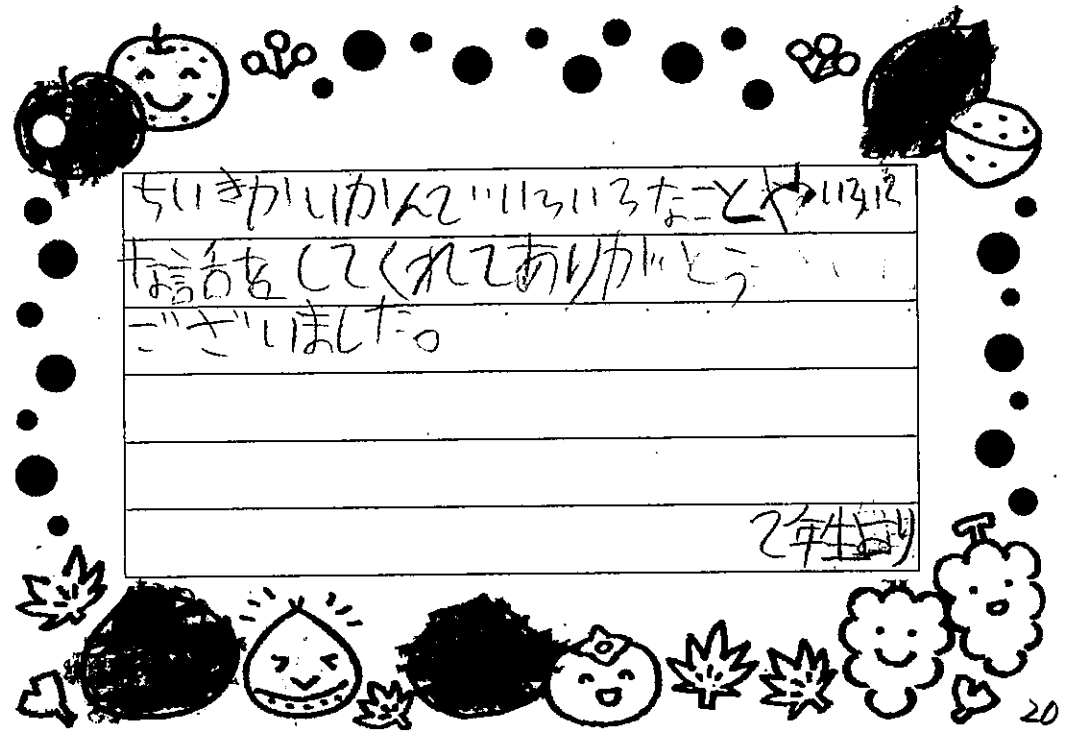 ちいきかいかんでいろいろなことやいろいろ
な話をしてくれてありがとう
ございました。
2年生より
20